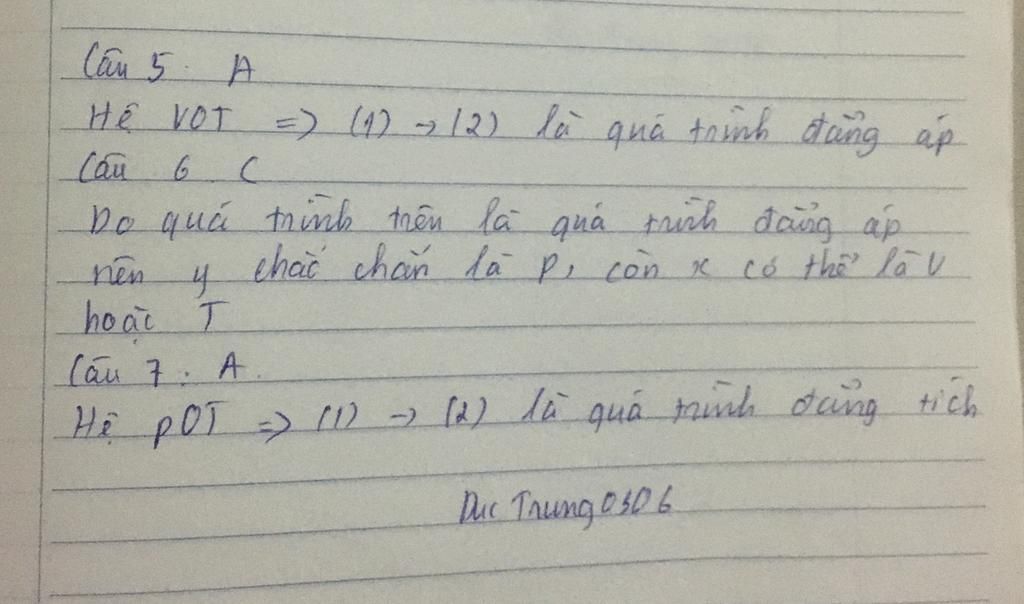 Câu 5. A
Hệ VOT => (1) -> (2) là quá trình đẳng áp
Câu 6 C
Do quá trình trên là quá trình đẳng áp
nên y chắc chắn là p, còn x có thể là V
hoặc T
Câu 7: A.
Hệ pOT => (1) -> (2) là quá trình đẳng tích
Duc Trung0306